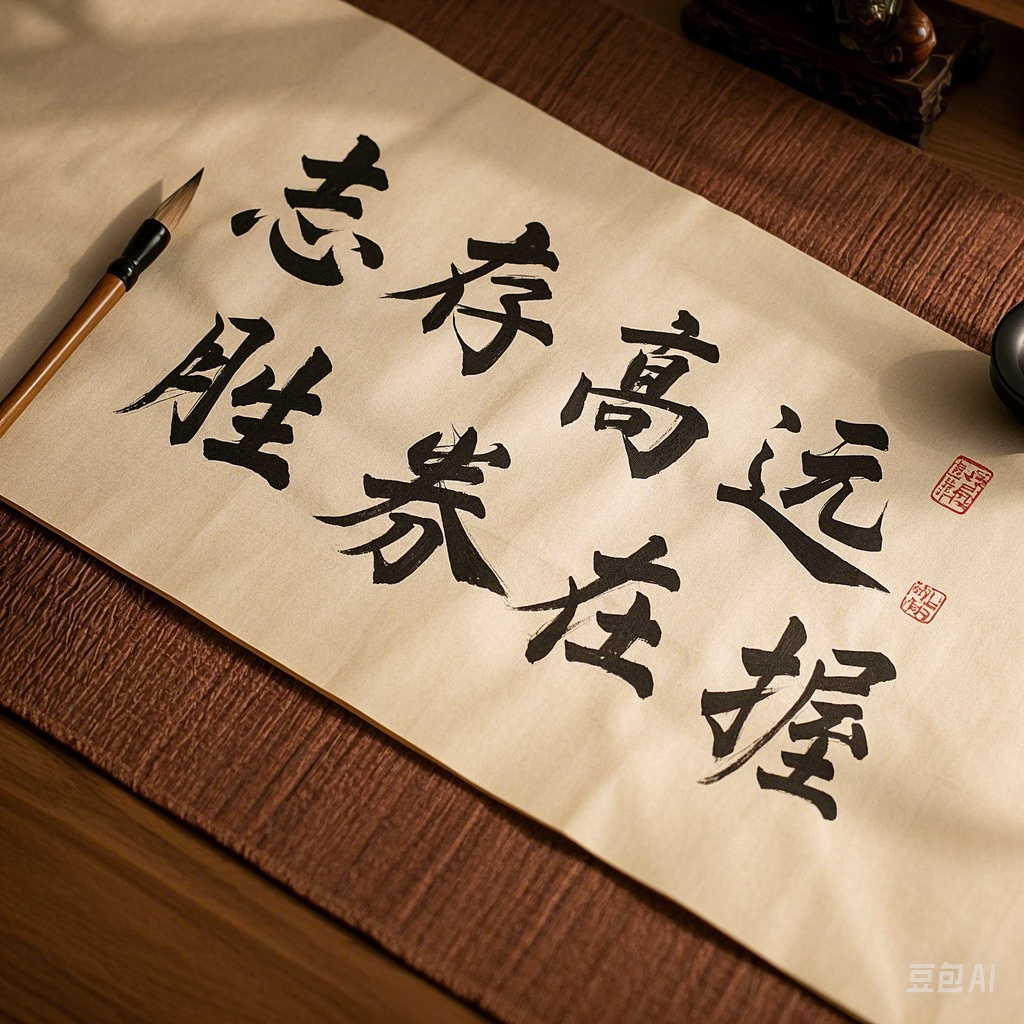 志存高远
胜券在握
豆包AI